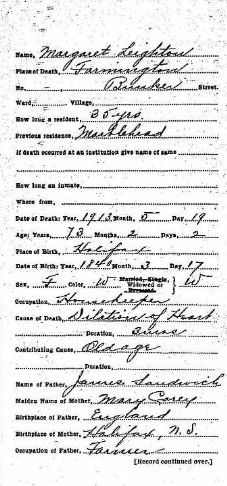 Name, Margaret Leighton
Place of Death, Farmington
No. - , Bunker Street.
Ward, Village,
How long a resident, 35 yrs.
Previous residence, Marblehead
If death occurred at an institution give name of same
How long an inmate,
Where from,
Date of Death: Year, 1913, Month, 5 Day, 19
Age: Years, 73 Months, 2 Days, 2
Place of Birth, Halifax
Date of Birth: Year, 1840 Month, 3 Day, 17
Sex, F Color, W Married, Single, Widowed or Divorced. } W
Occupation, Housekeeper
Cause of Death, Dilation of Heart
Duration,
Contributing Cause, Old age
Duration,
Name of Father, James Sandwich
Maiden Name of Mother, Mary Carey
Birthplace of Father, England
Birthplace of Mother, Halifax, N. S.
Occupation of Father, Farmer
[Record continued over.]